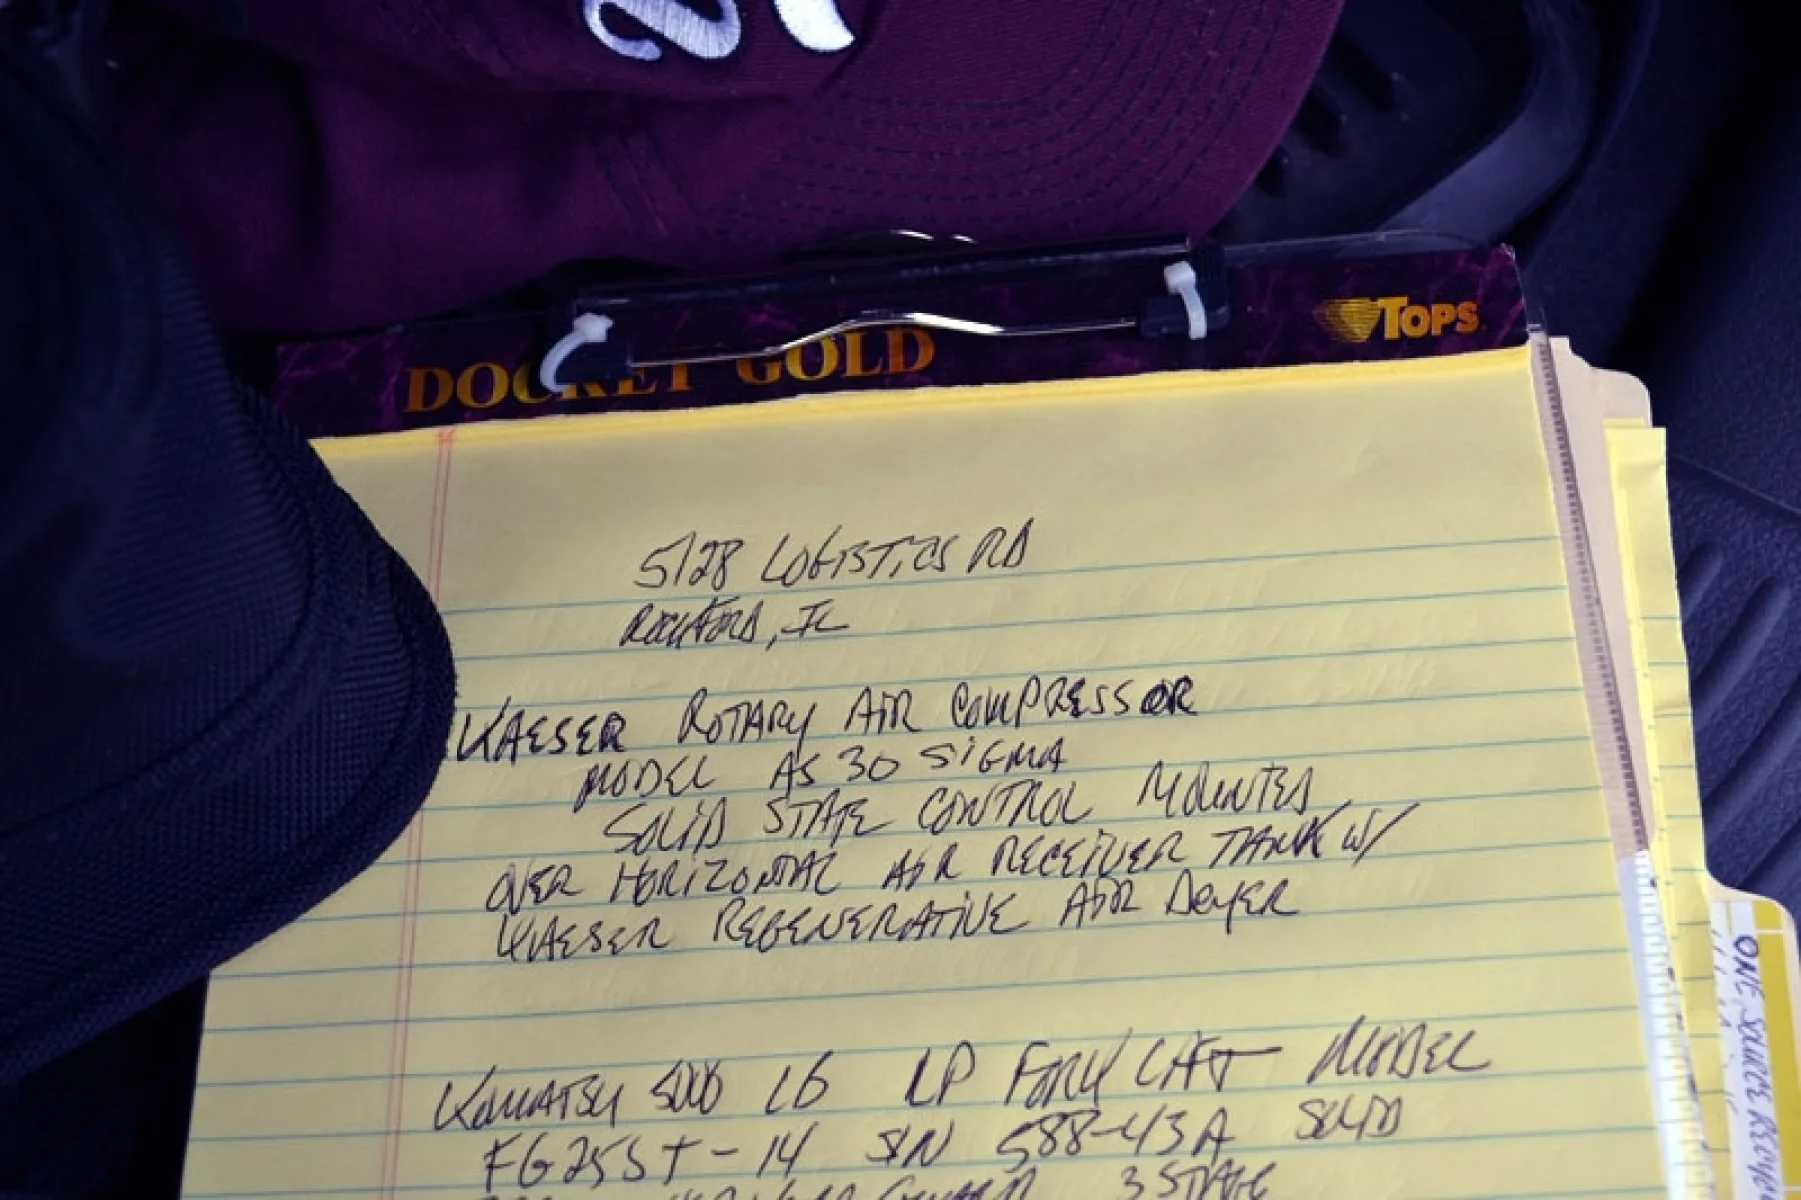 DOCKET GOLD
TOPS
5128 LOGISTICS RD
ROCKFORD, IL
KAESER ROTARY AIR COMPRESSOR
MODEL AS 30 SIGMA
SOLID STATE CONTROL MOUNTED
OVER HORIZONTAL AIR RECEIVER TANK W/
KAESER REGENERATIVE AIR DRYER
KOMATSU 5000 LB LP FORK LIFT MODEL
FG25ST-14 S/N 588-43A SOLID
3 STAGE
ONE SOURCE